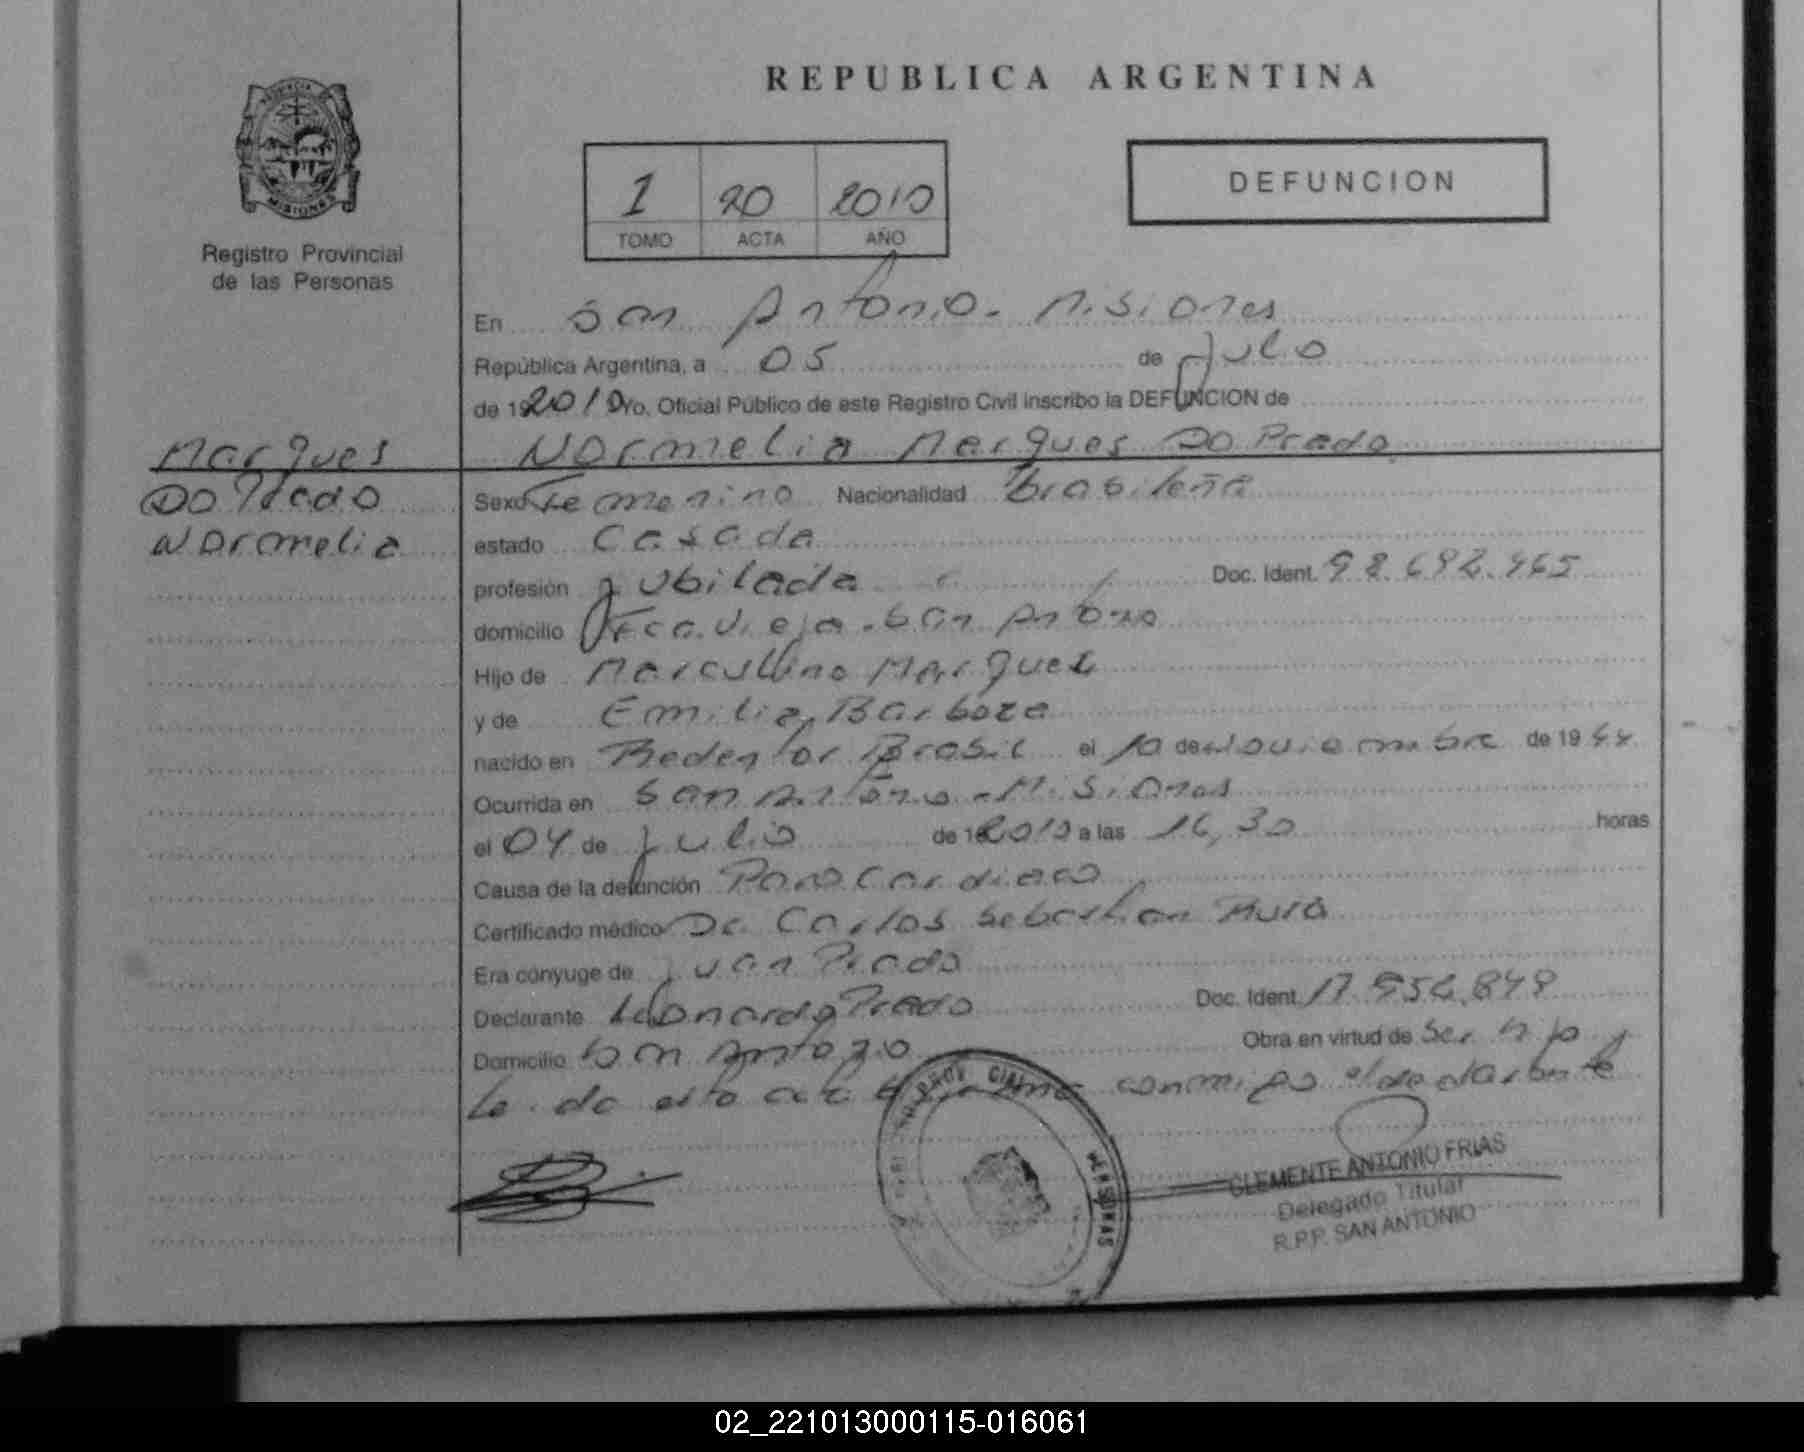 REPUBLICA ARGENTINA
MISIONES
Registro Provincial
de las Personas
1 20 2010
TOMO ACTA AÑO
DEFUNCION
En San Antonio - Misiones
República Argentina, a 05 de Julio
de 2010 Yo, Oficial Público de este Registro Civil inscribo la DEFUNCION de
Normelia Marques Do Prado
Marques
Do Prado
Normelia
Sexo Femenino Nacionalidad Brasileña
estado Casada
profesión jubilada Doc. Ident.
domicilio Fca. Vieja - San Antonio
Hijo de Marcullino Marques
y de Emilia Barboza
nacido en Redentor Brasil el 10 de Noviembre de 19
Ocurrida en San Antonio - Misiones
el 04 de julio de 2010 a las 16,30 horas
Causa de la defunción Paro Cardiaco
Certificado médico Dr Carlos Sebastian
Era cónyuge de Juan Prado
Declarante Leonardo Prado Doc. Ident.
Domicilio San Antonio Obra en virtud de Ser hijo y
Leida esta acta firma conmigo el declarante
PERSONAS
CLEMENTE ANTONIO FRIAS
Delegado Titular
R.P.P. SAN ANTONIO
02_221013000115-016061